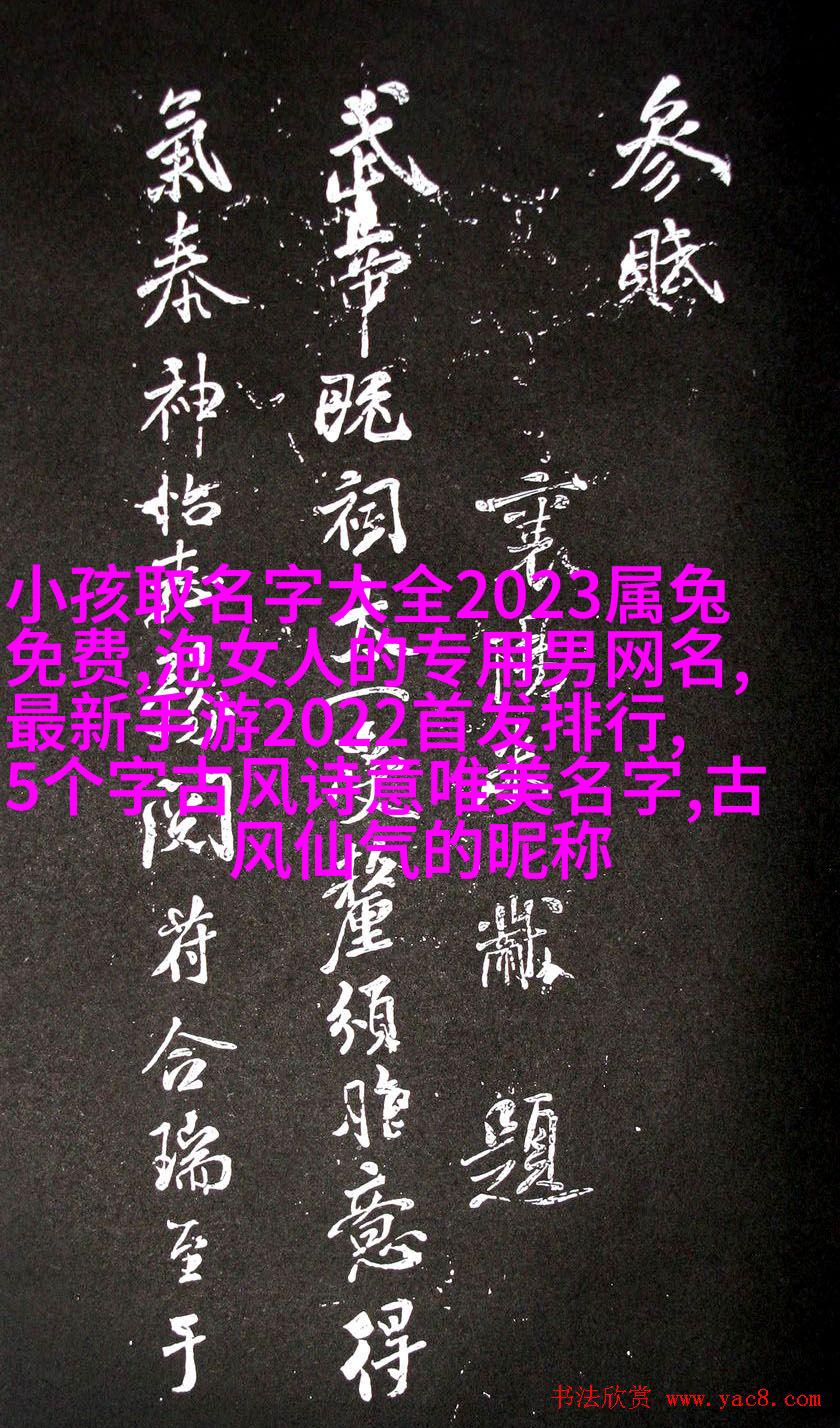 参賦
襄陽米黻題
武帝既祠太一受釐頒胙意得
氣泰神怡嘉閱符合瑞至于
小孩取名字大全2023属兔
免费,泡女人的专用男网名,
最新手游2022首发排行,
5个字古风诗意唯美名字,古
风仙气的昵称
书法欣赏 www.yac8.com